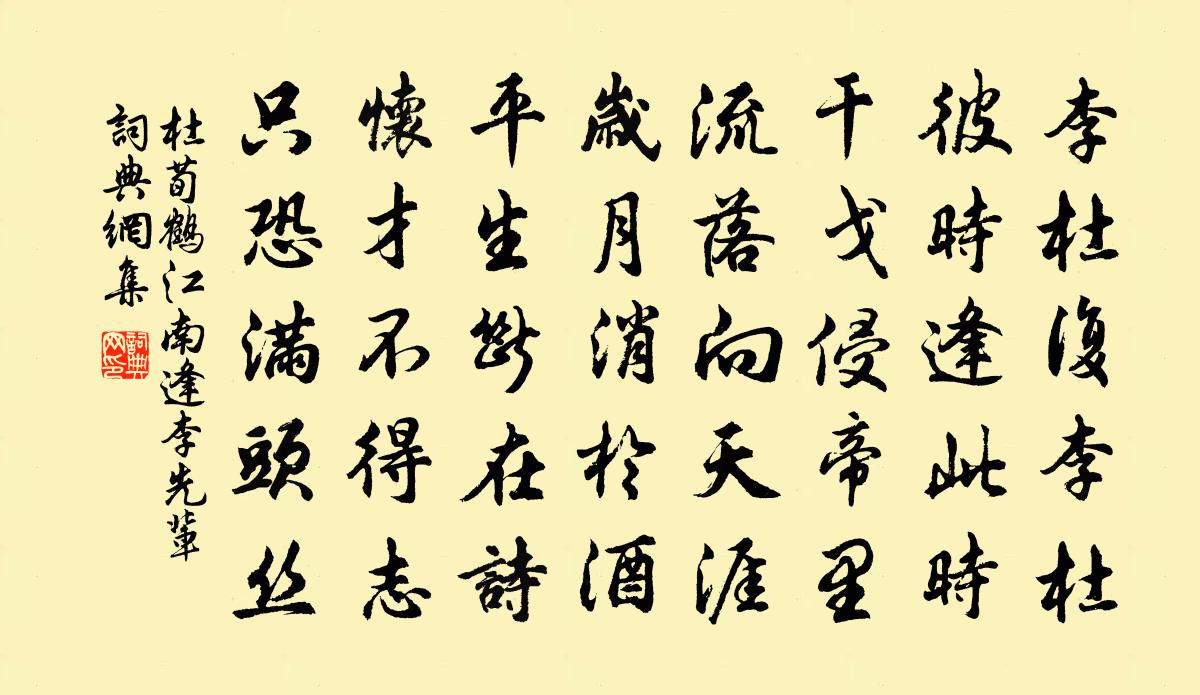 李杜復李杜
彼時逢此時
干戈侵帝里
流落向天涯
歲月消於酒
平生斷在詩
懷才不得志
只恐滿頭丝
杜荀鶴江南逢李先輩
詞典網集
詞典
网印